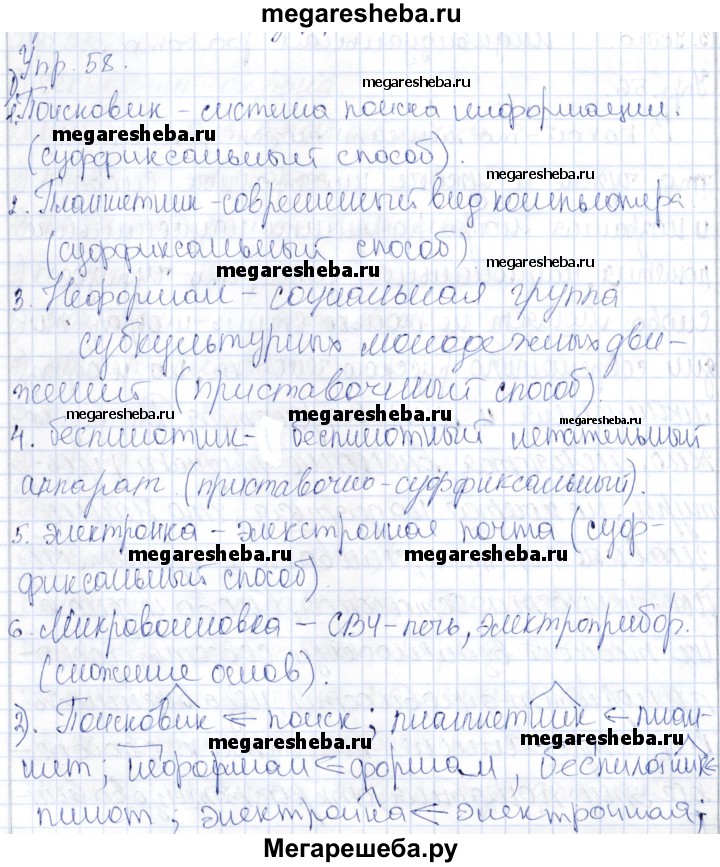 megaresheba.ru
Упр. 58.
megaresheba.ru
1)
1. Поисковик – система поиска информации.
megaresheba.ru
(суффиксальный способ).
megaresheba.ru
2. Планшетник – современный вид компьютера
(суффиксальный способ)
megaresheba.ru megaresheba.ru
3. Неформал – социальная группа
субкультурных молодежных дви-
жений (приставочный способ).
megaresheba.ru megaresheba.ru
4. беспилотник – беспилотный летательный
аппарат (приставочно-суффиксальный).
5. Электронка – электронная почта (суф-
megaresheba.ru megaresheba.ru
фиксальный способ).
6. Микроволновка – СВЧ-печь, электроприбор.
(сложение основ).
2). Поисковик ← поиск; планшетник ← план-
megaresheba.ru megaresheba.ru
шет; неформал ← формал, беспилотник ←
пилот; электронка ← электронная;
Мегарешеба.ру